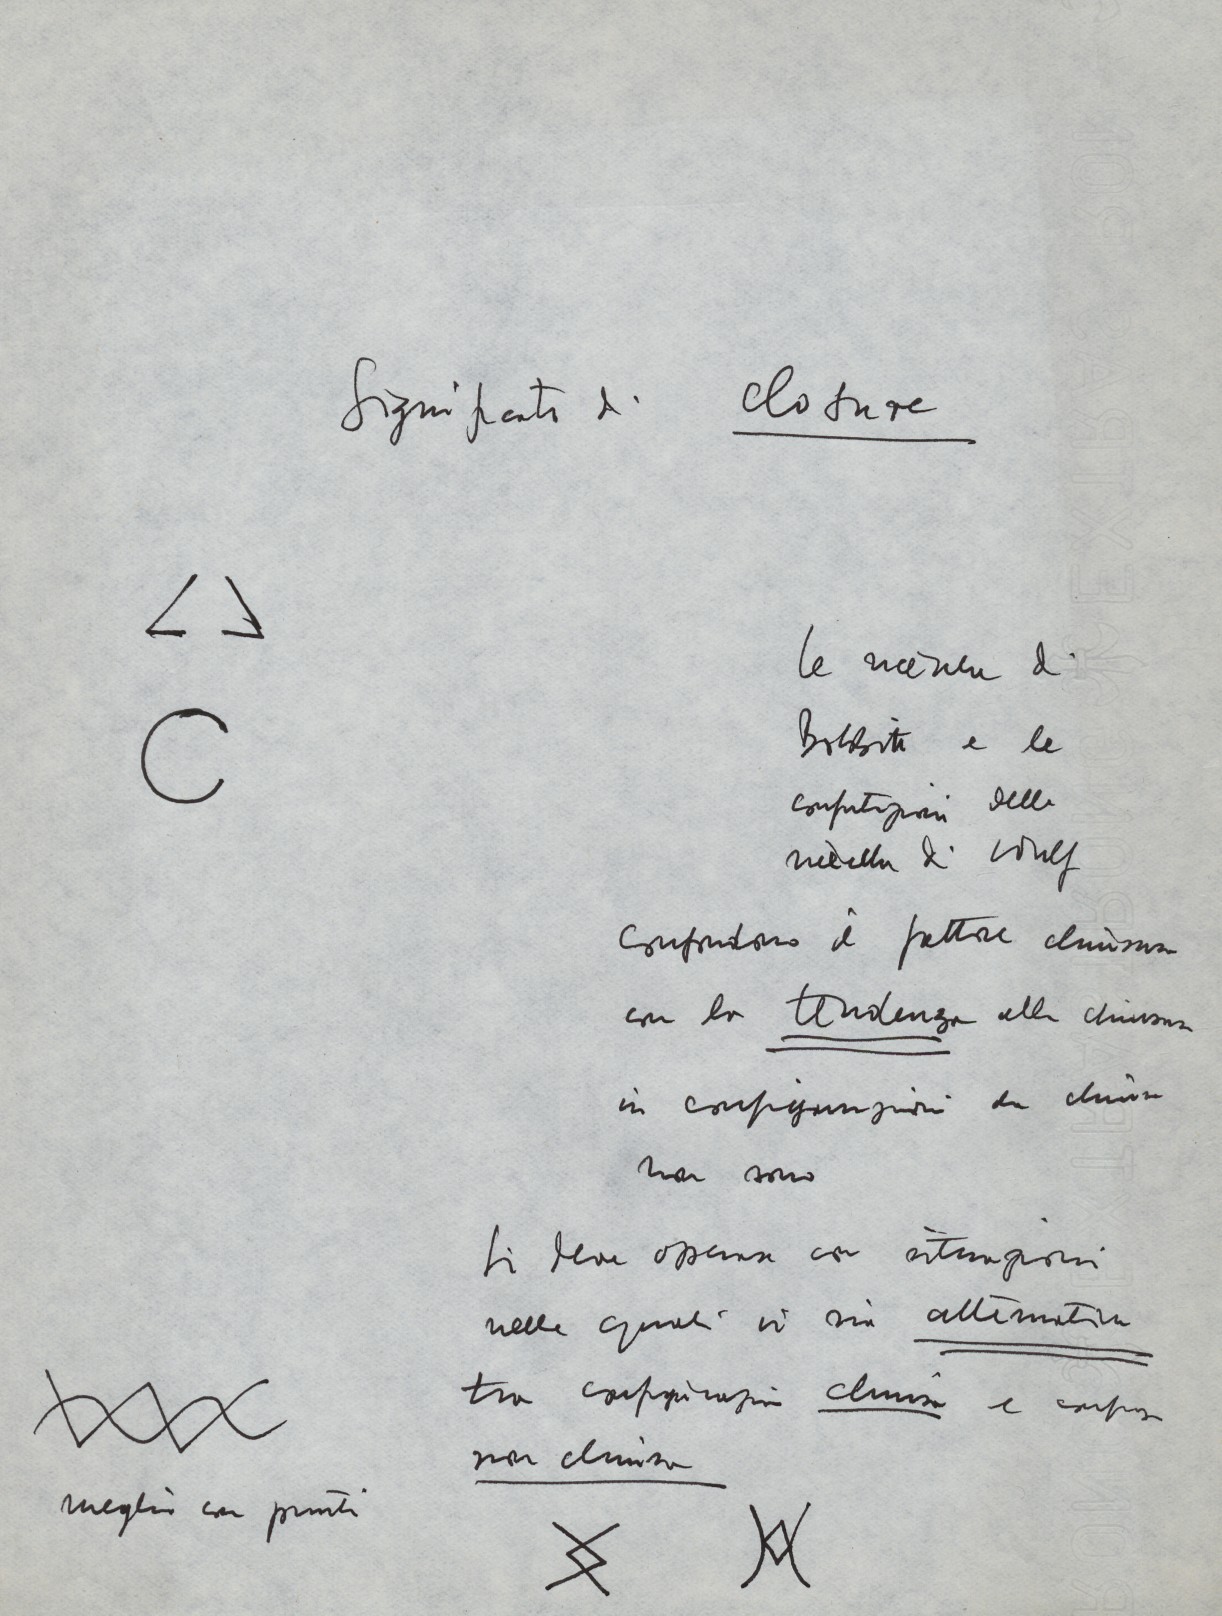 Significato di closure
le ricerche di
Bobbitt e le
confutazioni delle
ricerche di Wulf
confondono il fattore chiusura
con la tendenza alla chiusura
in configurazioni da chiuse
non sono
Si deve operare con situazioni
nelle quali vi sia alternativa
tra configurazioni chiusa e
non chiusa
meglio con punti